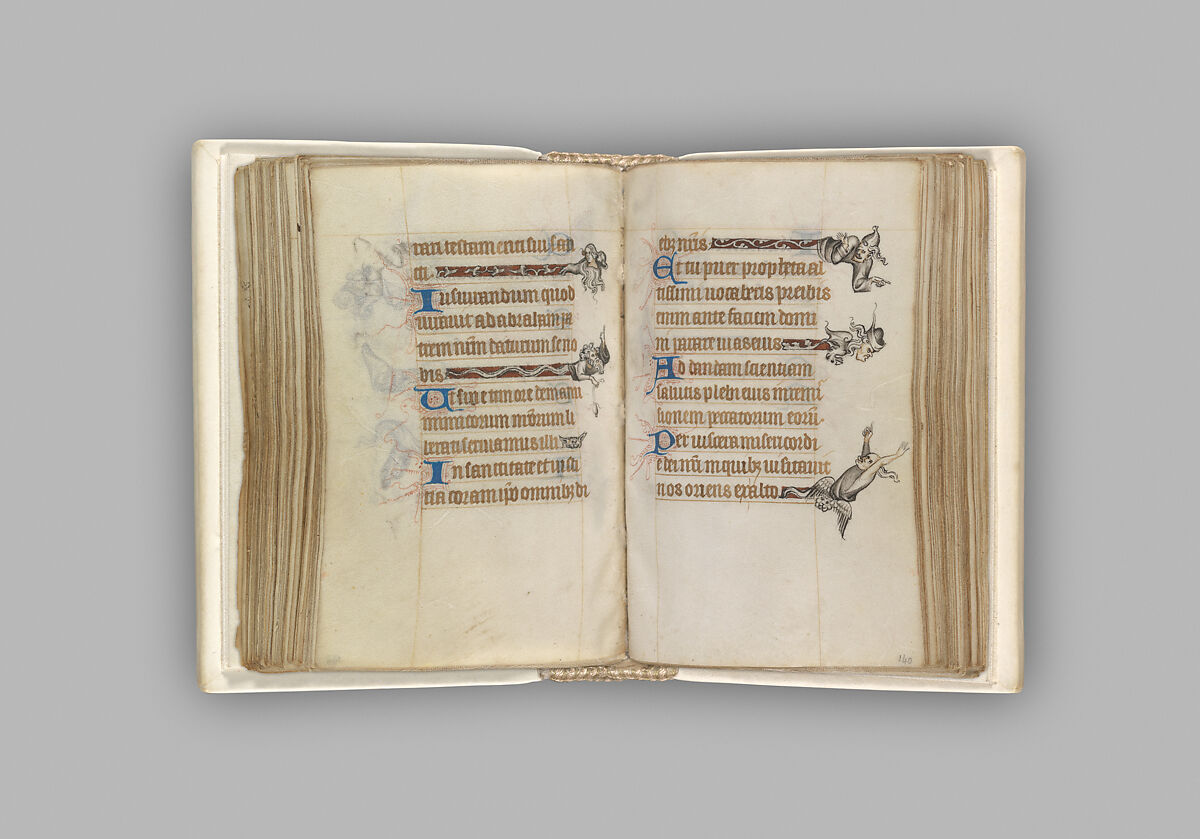 rari testamenti sui san
cti
Iusiurandum quod
iuravit ad abraham pa
trem nr̄m daturum se no
bis
Ut sine timore de manu
inimicorum nr̄orum li
berati serviamus illi
In sanctitate et iusti
tia coram ip̄o omnibꝫ di
ebꝫ nr̄is
Et tu puer propheta al
tissimi vocaberis preibis
enim ante faciem domi
ni parare vias eius
Ad dandam scientiam
salutis plebi eius in remi
sionem peccatorum eorū
Per viscera misericordi
e dei nr̄i in quibꝫ visitavit
nos oriens ex alto
140